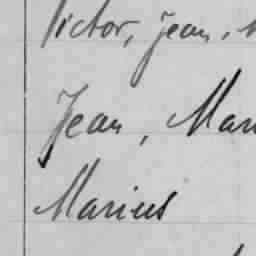 Victor, Jean,
Jean, Mari
Marius